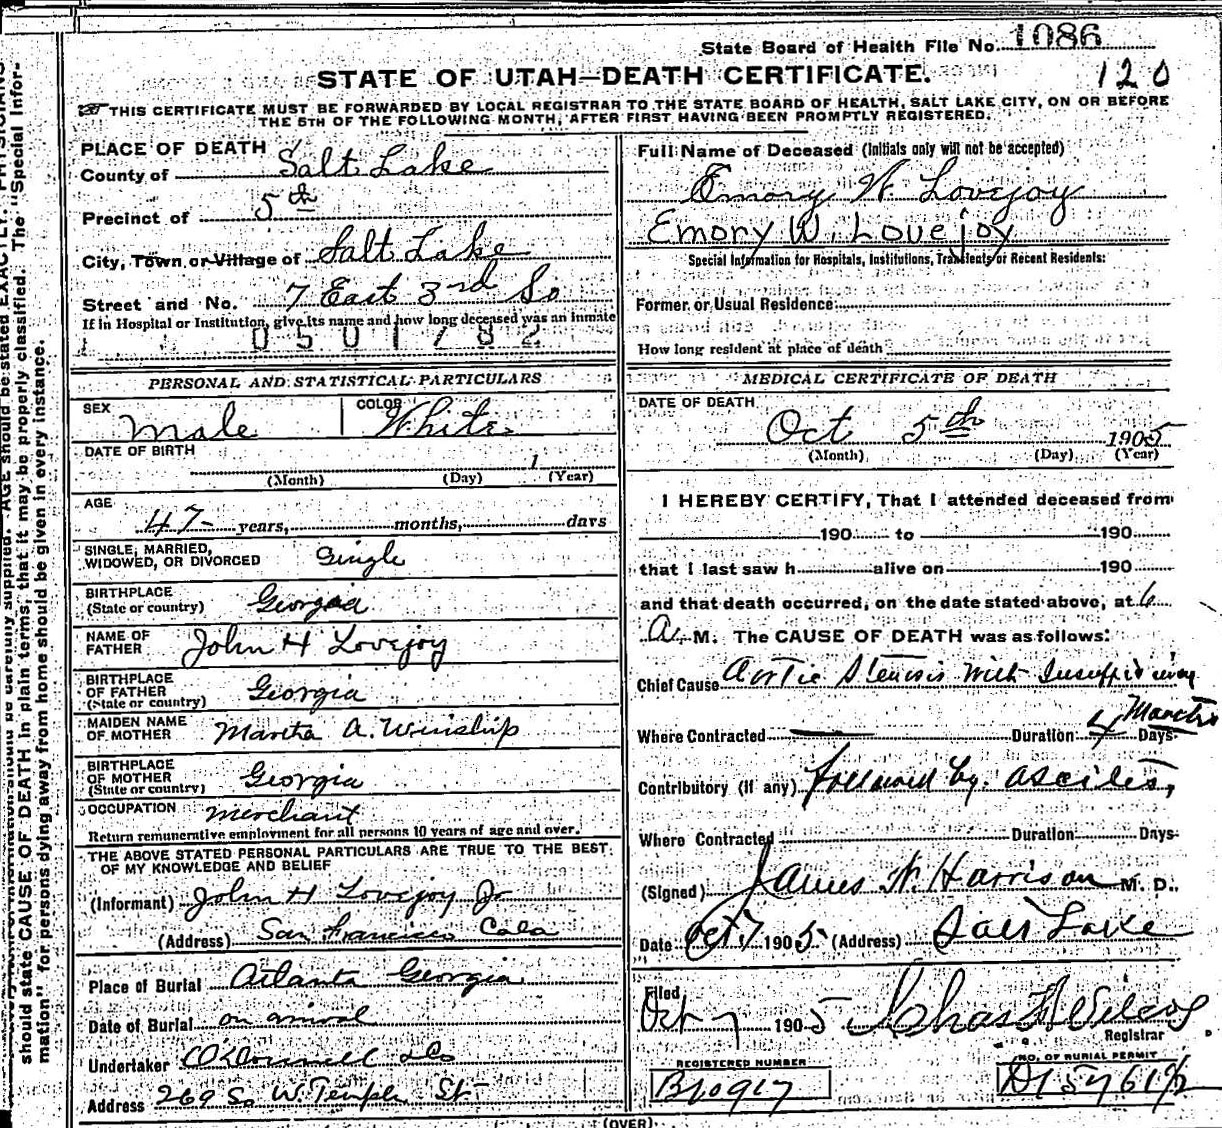 State Board of Health File No. 1086
120
STATE OF UTAH—DEATH CERTIFICATE.
THIS CERTIFICATE MUST BE FORWARDED BY LOCAL REGISTRAR TO THE STATE BOARD OF HEALTH, SALT LAKE CITY, ON OR BEFORE
THE 5TH OF THE FOLLOWING MONTH, AFTER FIRST HAVING BEEN PROMPTLY REGISTERED.
PLACE OF DEATH
County of Salt Lake
Precinct of 5th
City, Town or Village of Salt Lake
Street and No. 7 East 3rd So
If in Hospital or Institution, give its name and how long deceased was an inmate
0501782
PERSONAL AND STATISTICAL PARTICULARS
SEX Male
COLOR White
DATE OF BIRTH
1
(Month) (Day) (Year)
AGE
47 years, months, days
SINGLE, MARRIED,
WIDOWED, OR DIVORCED Single
BIRTHPLACE
(State or country) Georgia
NAME OF
FATHER John H Lovejoy
BIRTHPLACE
OF FATHER
(State or country) Georgia
MAIDEN NAME
OF MOTHER Martha A. Winship
BIRTHPLACE
OF MOTHER
(State or country) Georgia
OCCUPATION Merchant
Return remunerative employment for all persons 10 years of age and over.
THE ABOVE STATED PERSONAL PARTICULARS ARE TRUE TO THE BEST
OF MY KNOWLEDGE AND BELIEF
(Informant) John H Lovejoy Jr
(Address) San Francisco Cala
Place of Burial Atlanta Georgia
Date of Burial on arrival
Undertaker O'Donnell &Co
Address 269 So W. Temple St
Full Name of Deceased (Initials only will not be accepted)
Emory W Lovejoy
Emory W. Lovejoy
Special Information for Hospitals, Institutions, Transients or Recent Residents:
Former or Usual Residence
How long resident at place of death
MEDICAL CERTIFICATE OF DEATH
DATE OF DEATH
Oct 5th 1905
(Month) (Day) (Year)
I HEREBY CERTIFY, That I attended deceased from
190 to 190
that I last saw h alive on 190
and that death occurred, on the date stated above, at 6
A. M. The CAUSE OF DEATH was as follows:
Chief Cause Aortic Stenosis with Insufficiency
Where Contracted — Duration 4 Months Days
Contributory (if any) followed by ascites,
Where Contracted Duration Days
(Signed) James N. Harrison M. D.
Date Oct 7 1905 (Address) Salt Lake
Filed
Oct 7 1905 Chas F Wilcox
Registrar
REGISTERED NUMBER
B10917
NO. OF BURIAL PERMIT
(OVER)
should state CAUSE OF DEATH in plain terms, that it may be properly classified. The "Special Infor-
mation" for persons dying away from home should be given in every instance.